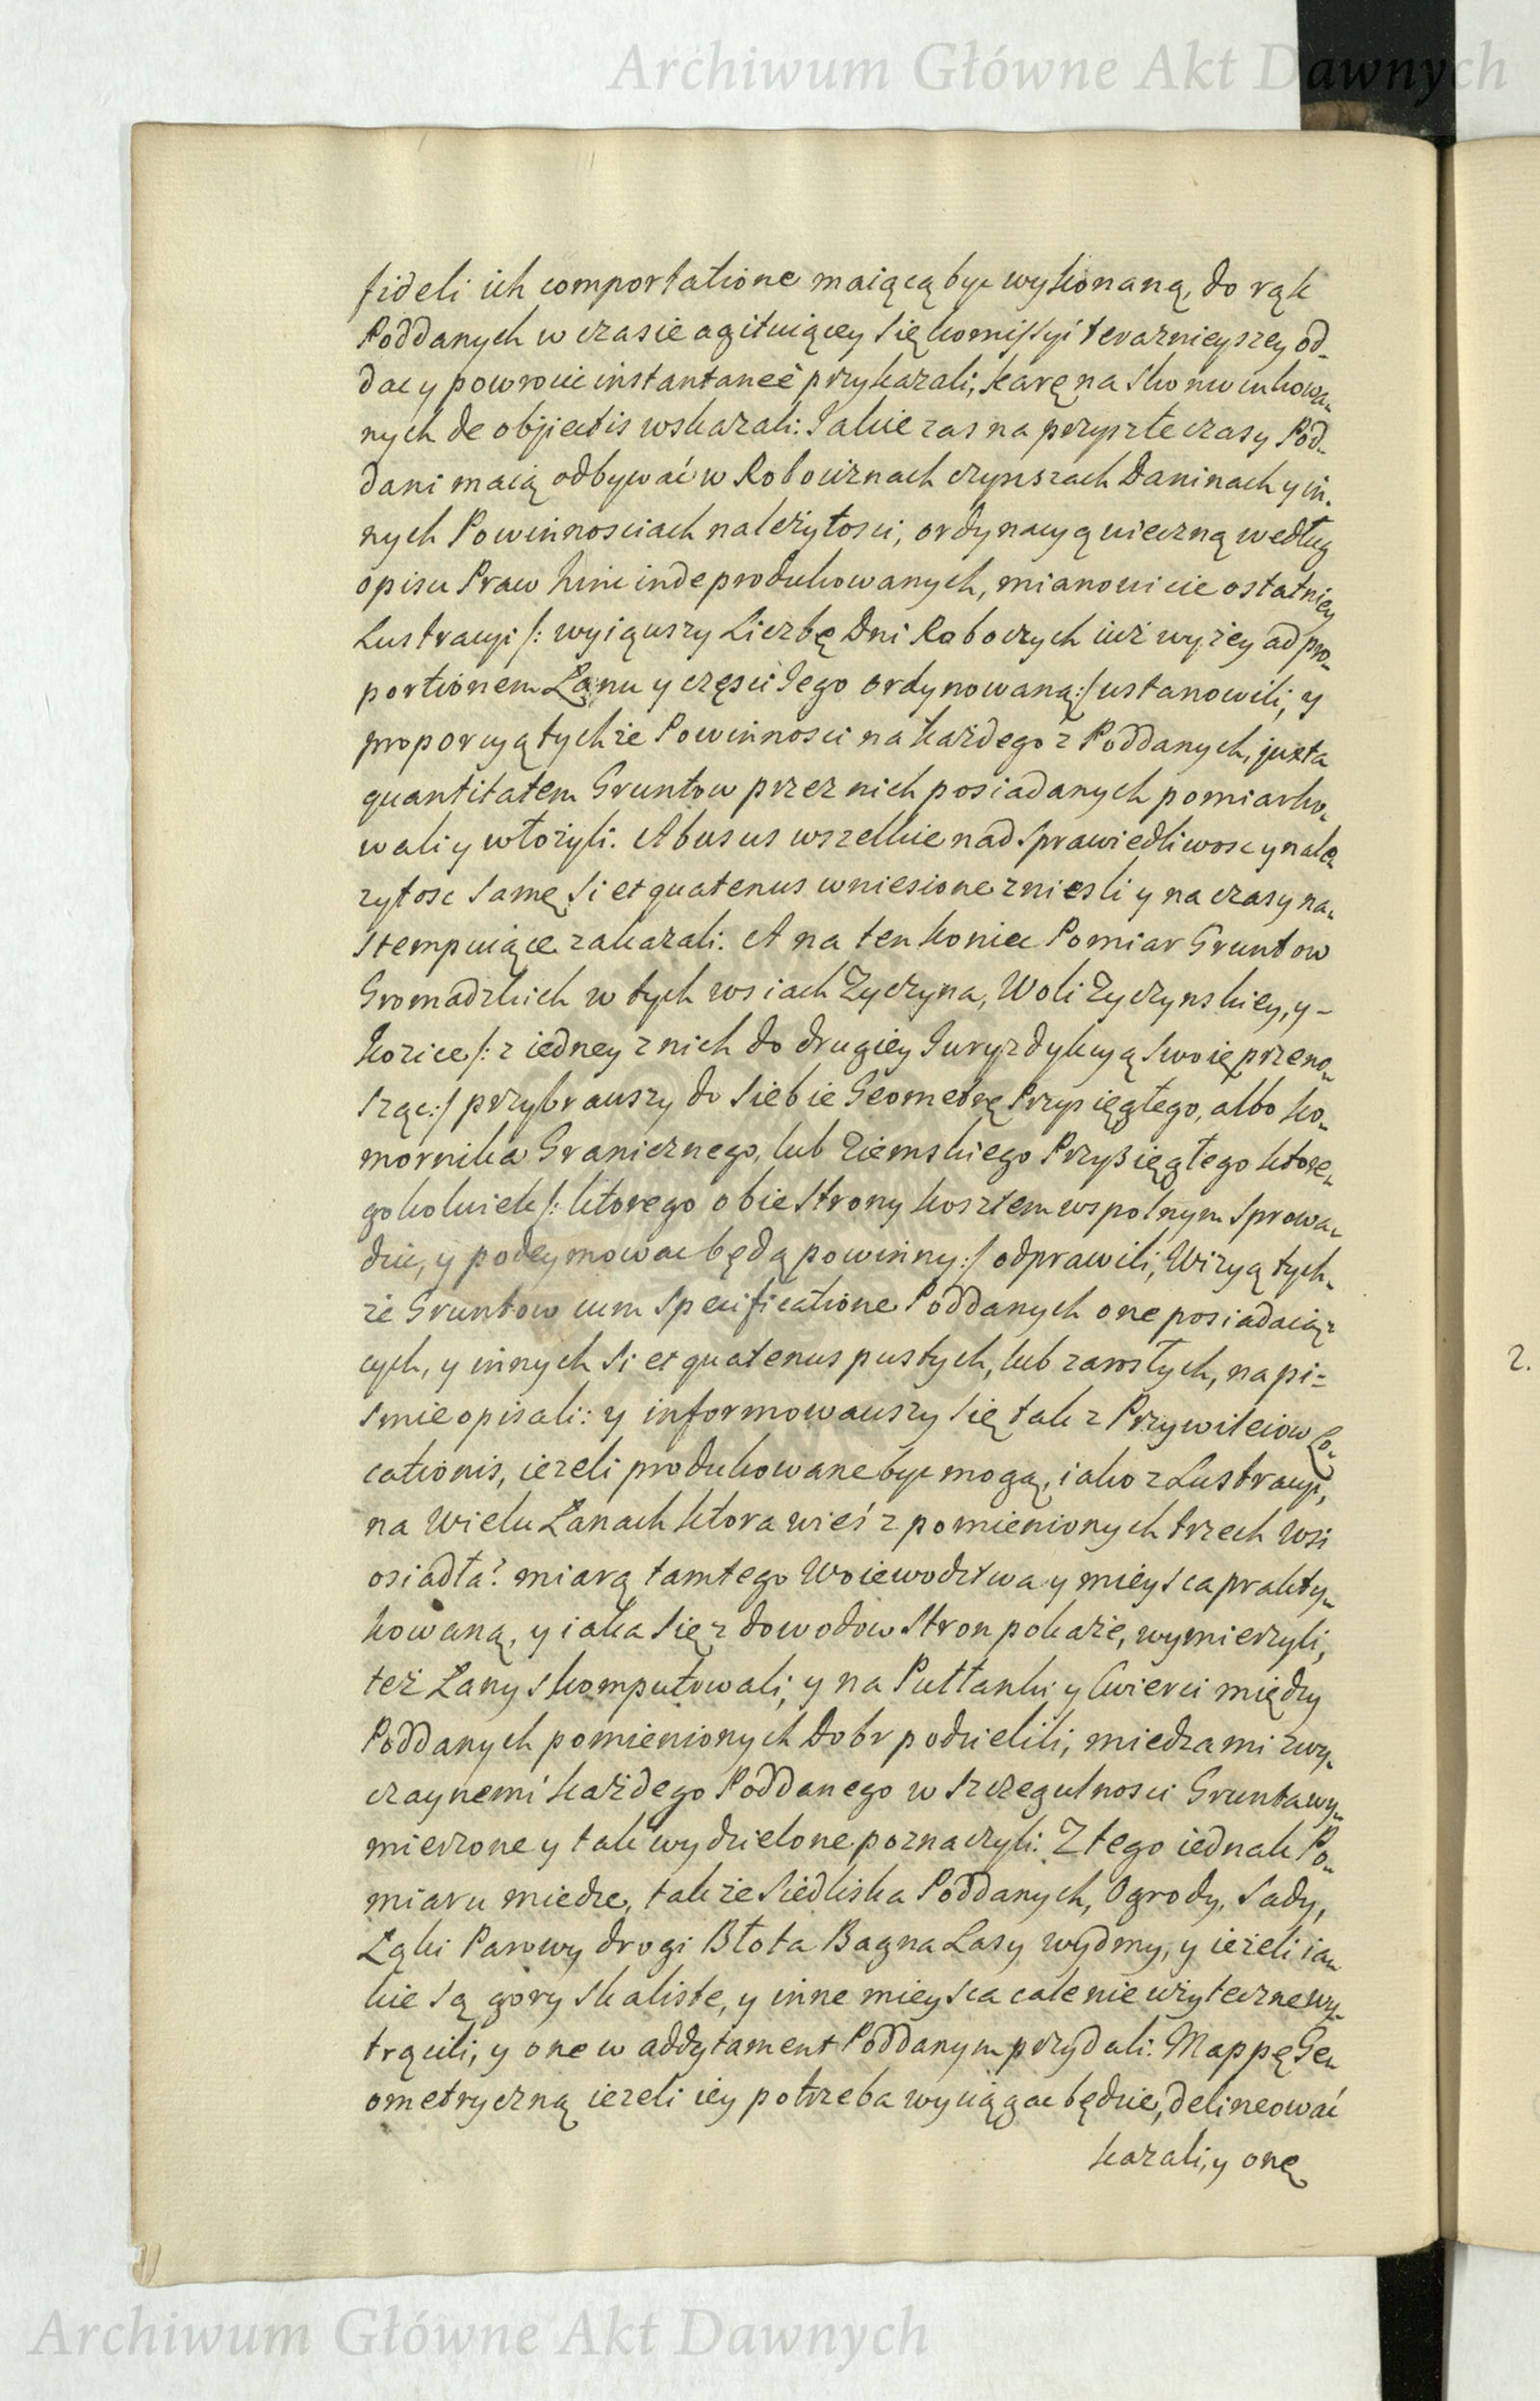 Archiwum Główne Akt Dawnych
fideli ich comportatione maiącą być wykonaną, do rąk
Poddanych w czasie agituiącey się kommissyi teraznieyszey od-
dac y powrocic instantaneè przykazali, karę na skonwinkowa-
nych de objectis wskazali: Jakie zas na przyszłe czasy Pod-
dani maią odbywać w Robociznach czynszach Daninach y in-
nych Powinnosciach należytosci, ordynacyą wieczną według
opisu Praw hinc inde produkowanych, mianowicie ostatniey
Lustracyi /: wyiąwszy Liczbę Dni Roboczych iuż wyżey ad pro-
portionem Łanu y częsci Jego ordynowaną :/ ustanowili, y
proporcyą tychże Powinnosci na każdego z Poddanych, juxta
quantitatem Gruntow przez nich posiadanych pomiarko-
wali y włożyli: Abusus wszelkie nad sprawiedliwosc y nale-
zytosc samę si et quatenus wniesione zniesli y na czasy na-
stempuiące zakazali: A na ten koniec Pomiar Gruntow
Gromadzkich w tych wsiach Zyczyna, Woli Zyczynskiey, y -
Kozice /: z iedney z nich do drugiey Juryzdykcyą swoię przeno-
sząc :/ przybrawszy do siebie Geometrę Przysięgłego, albo Ko-
mornika Granicznego, lub Ziemskiego Przysięgłego ktore-
gokolwiek /: ktorego obie strony kosztem wspolnym sprowa-
dzic, y podeymowac będą powinny :/ odprawili, Wizyą tych-
że Gruntow cum specificatione Poddanych one posiadaią-
cych, y innych si et quatenus pustych, lub zarosłych, na pi-
smie opisali: y informowawszy się tak z Przywileiow Lo-
cationis, ieżeli produkowane być mogą, iako z Lustracyi,
na Wielu Łanach ktora wieś z pomienionych trzech Wsi
osiadła? miarą tamtego Woiewodztwa y mieysca prakty-
kowaną, y iaka się z dowodow stron pokaże, wymierzyli,
też Łany skomputowali, y na Pułłanki y Cwierci między
Poddanych pomienionych Dobr podzielili, miedzami zwy-
czaynemi każdego Poddanego w szczegulnosci Grunta wy-
mierzone y tak wydzielone poznaczyli: Z tego iednak Po-
miaru miedze, także siedliska Poddanych, Ogrody, Sady,
Łąki Parowy drogi Błota Bagna Lasy wydmy, y ieżeli ia-
kie są gory skaliste, y inne mieysca cale nie użyteczne wy-
trącili, y one w addytament Poddanym przydali: Mappę Ge-
ometryczną ieżeli iey potrzeba wyciągac będzie, delineować
kazali, y onę
2.
Archiwum Główne Akt Dawnych